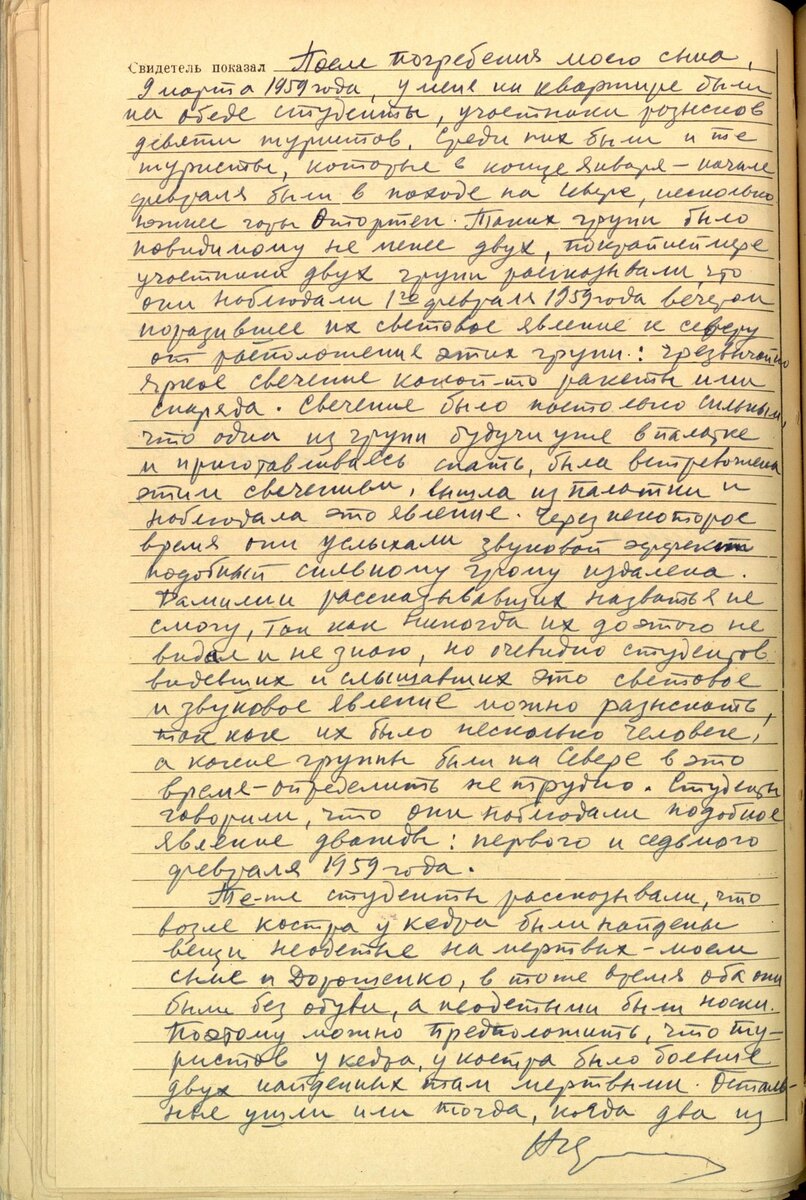 Свидетель показал После погребения моего сына,
9 марта 1959 года, у меня на квартире были
на обеде студенты, участники розысков
девяти туристов. Среди них были и те
туристы, которые в конце января – начале
февраля были в походе на Севере, несколько
южнее горы Отортен. Таких групп было
повидимому не менее двух, покрайней мере
участники двух групп рассказывали, что
они наблюдали 1го февраля 1959 года вечером
поразившее их световое явление к северу
от расположения этих групп: чрезвычайно
яркое свечение какой-то ракеты или
снаряда. Свечение было настолько сильным,
что одна из групп будучи уже в палатке
и приготавливаясь спать, была встревожена
этим свечением, вышла из палатки и
наблюдала это явление. Через некоторое
время они услыхали звуковой эффект
подобный сильному грому издалека.
Фамилии рассказывавших назвать я не
смогу, так как никогда их до этого не
видел и не знаю, но очевидно студентов
видевших и слышавших это световое
и звуковое явление можно разыскать,
так как их было несколько человек,
а какие группы были на Севере в это
время – определить не трудно. Студенты
говорили, что они наблюдали подобное
явление дважды: первого и седьмого
февраля 1959 года.
Те-же студенты рассказывали, что
возле костра у кедра были найдены
вещи неодетые на мертвых – моем
сыне и Дорошенко, в тоже время оба они
были без обуви, а неодетыми были носки.
Поэтому можно предположить, что ту-
ристов у кедра, у костра было больше
двух найденных там мертвыми. Осталь-
ные ушли или тогда, когда два из